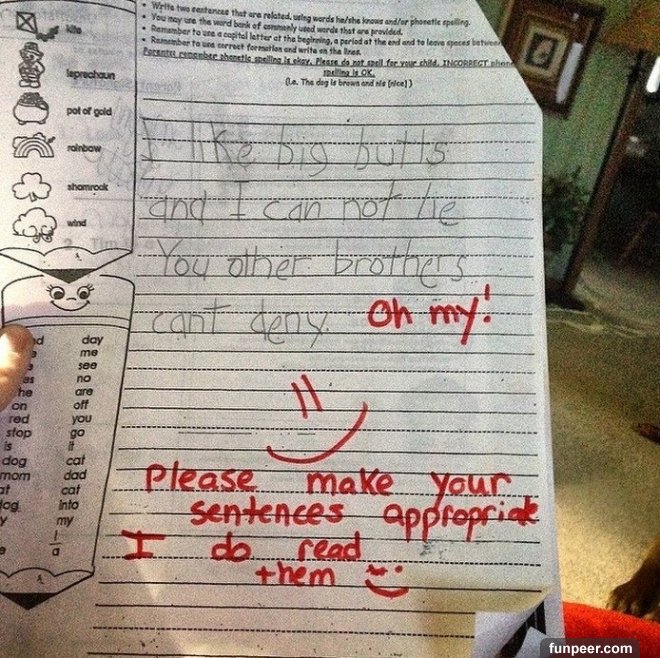 Write two sentences that are related, using words he/she knows and/or phonetic spelling.
You may use the word bank of commonly used words that are provided.
Remember to use a capital letter at the beginning, a period at the end and to leave spaces between
Remember to use correct formation and write on the lines.
Parents: remember phonetic spelling is okay. Please do not spell for your child. INCORRECT
spelling is OK.
(I.e. The dog is brown and nis [nice] )
kite
leprechaun
pot of gold
rainbow
shamrock
wind
I like big butts
and I can not lie
You other brothers
cant deny. Oh my!
Please make your
sentences appropriate
I do read
them
day
me
see
no
he are
on off
red you
stop go
is it
dog cat
mom dad
at cat
into
my
I
a
funpeer.com